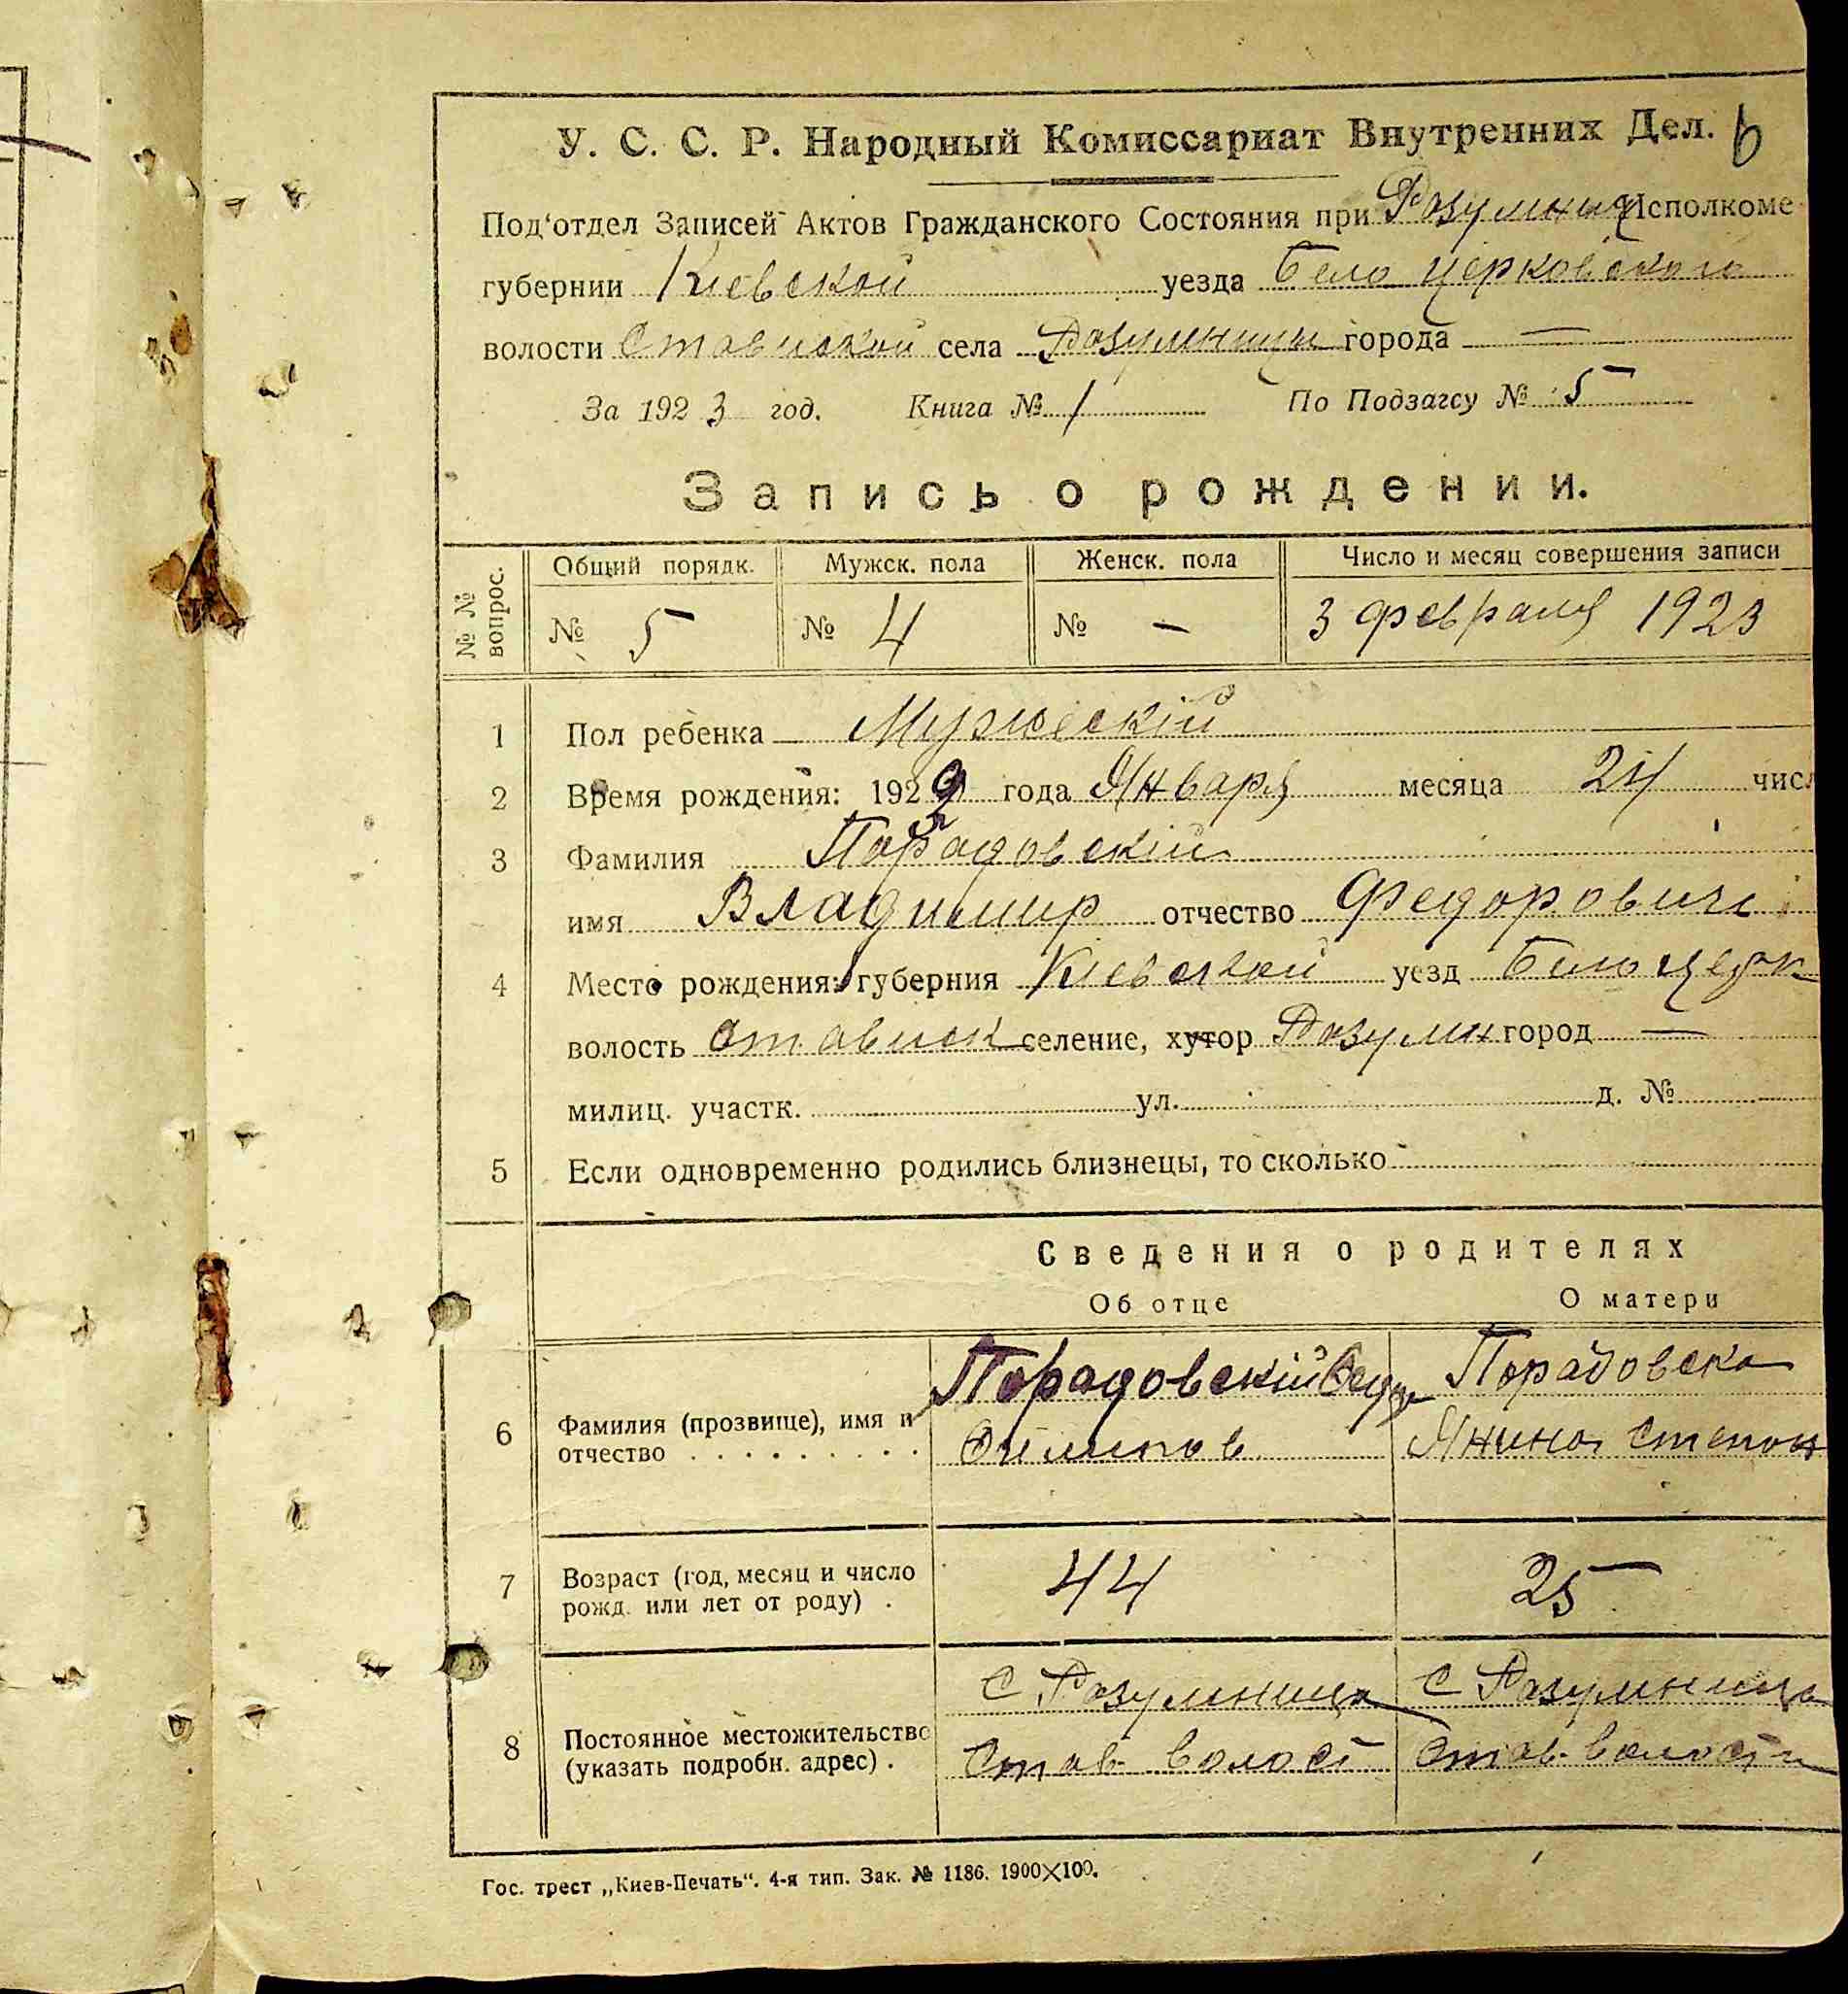 У. С. С. Р. Народный Комиссариат Внутренних Дел. 6
Под'отдел Записей Актов Гражданского Состояния при Разумниц Исполкоме
губернии Киевской уезда Бело Церковского
волости Ставиской села Разумницы города —
За 1923 год. Книга № 1 По Подзагсу № 5
Запись о рождении.
№ № вопрос. Общий порядк. Мужск. пола Женск. пола Число и месяц совершения записи
№ 5 № 4 № — 3 февраля 1923
1 Пол ребенка Мужескій
2 Время рождения: 192 года Января месяца 24 числ
3 Фамилия Порадовскій
имя Владимир отчество Федорович
4 Место рождения: губерния Киевской уезд Билоцерк
волость Стависк селение, хутор Разумн город —
милиц. участк. ул. д. №
5 Если одновременно родились близнецы, то сколько
Сведения о родителях
Об отце О матери
Порадовскій Порадовска
6 Фамилия (прозвище), имя и
отчество Янина Степан
7 Возраст (год, месяц и число
рожд. или лет от роду) . 44 25
С Разумница С Разумница
8 Постоянное местожительство
(указать подробн. адрес) . Став волост Став волости
Гос. трест „Киев-Печать". 4-я тип. Зак. № 1186. 1900×100.